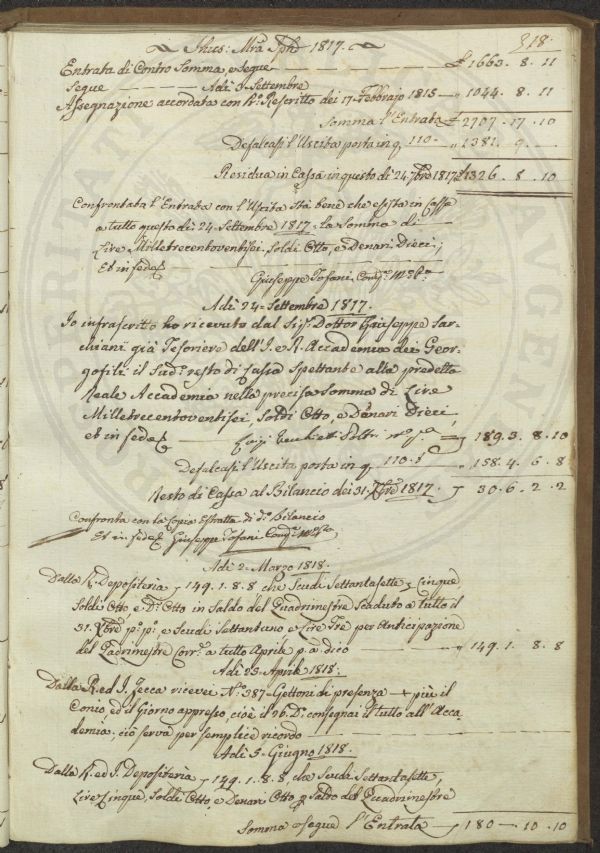 Jhus: Mra Jph 1817. 318.
Entrata di Contro Somma, e Segue £ 1663. 8. 11
Segue Adi 9 Settembre
Assegnazione accordata con R. Rescritto dei 17. Febbrajo 1815 " 1044. 8. 11
Somma l'Entrata £ 2707. 17. 10
Defalcasi l'Uscita posta in q. 110 " 1381. 9. —
Residua in Cassa in questo dì 24. 7bre 1817 £ 1326. 8. 10
Confrontata l'Entrata con l'Uscita stà bene che esista in Cassa
a tutto questo dì 24. Settembre 1817 la Somma di
Lire Milletrecentoventisei. Soldi Otto, e Denari Dieci;
Et in fede
Giuseppe Tofani
Adi 24. Settembre 1817.
Io infrascritto ho ricevuto dal Sig. Dottor Giuseppe Sar-
chiani già Tesoriere dell'I. e R. Accademia dei Geor-
gofili il Sudd. resto di Cassa Spettante alla predetta
Reale Accademia nella precisa Somma di Lire
Milletrecentoventisei, Soldi Otto, e Denari Dieci,
et in fede 189. 3. 8. 10
Defalcasi l'Uscita posta in q. 110. " 158. 4. 6. 8
Resto di Cassa al Bilancio dei 31. Xbre 1817. 30. 6. 2. 2
Confronta con la Copia Estratta di d.o Bilancio
Et in fede Giuseppe Tofani
Adi 2. Marzo 1818.
Dalla R. Depositeria 149. 1. 8. 8 che Scudi Settantasette, Cinque
Soldi Otto e D. Otto in Saldo del Quadrimestre Scaduto a tutto il
31. Xbre p.o p.o, e Scudi Settantuno e Lire Tre per Anticipazione
del Quadrimestre Corr. a tutto Aprile p. a dico " 149. 1. 8. 8
Adi 25. Aprile 1818.
Dalla R. ed I. Zecca ricevei N.o 387. Gettoni di presenza più il
Conio, ed il Giorno appresso, cioè il 26. D. consegnai il tutto all'Acca-
demia; ciò serva per semplice ricordo
Adi 5. Giugno 1818.
Dalla R. ed I. Depositeria 149. 1. 8. 8, che Scudi Settantasette,
Lire Cinque, Soldi Otto e Denari Otto q. Saldo del Quadrimestre
Somma e Segue l'Entrata 180 —. 10. 10